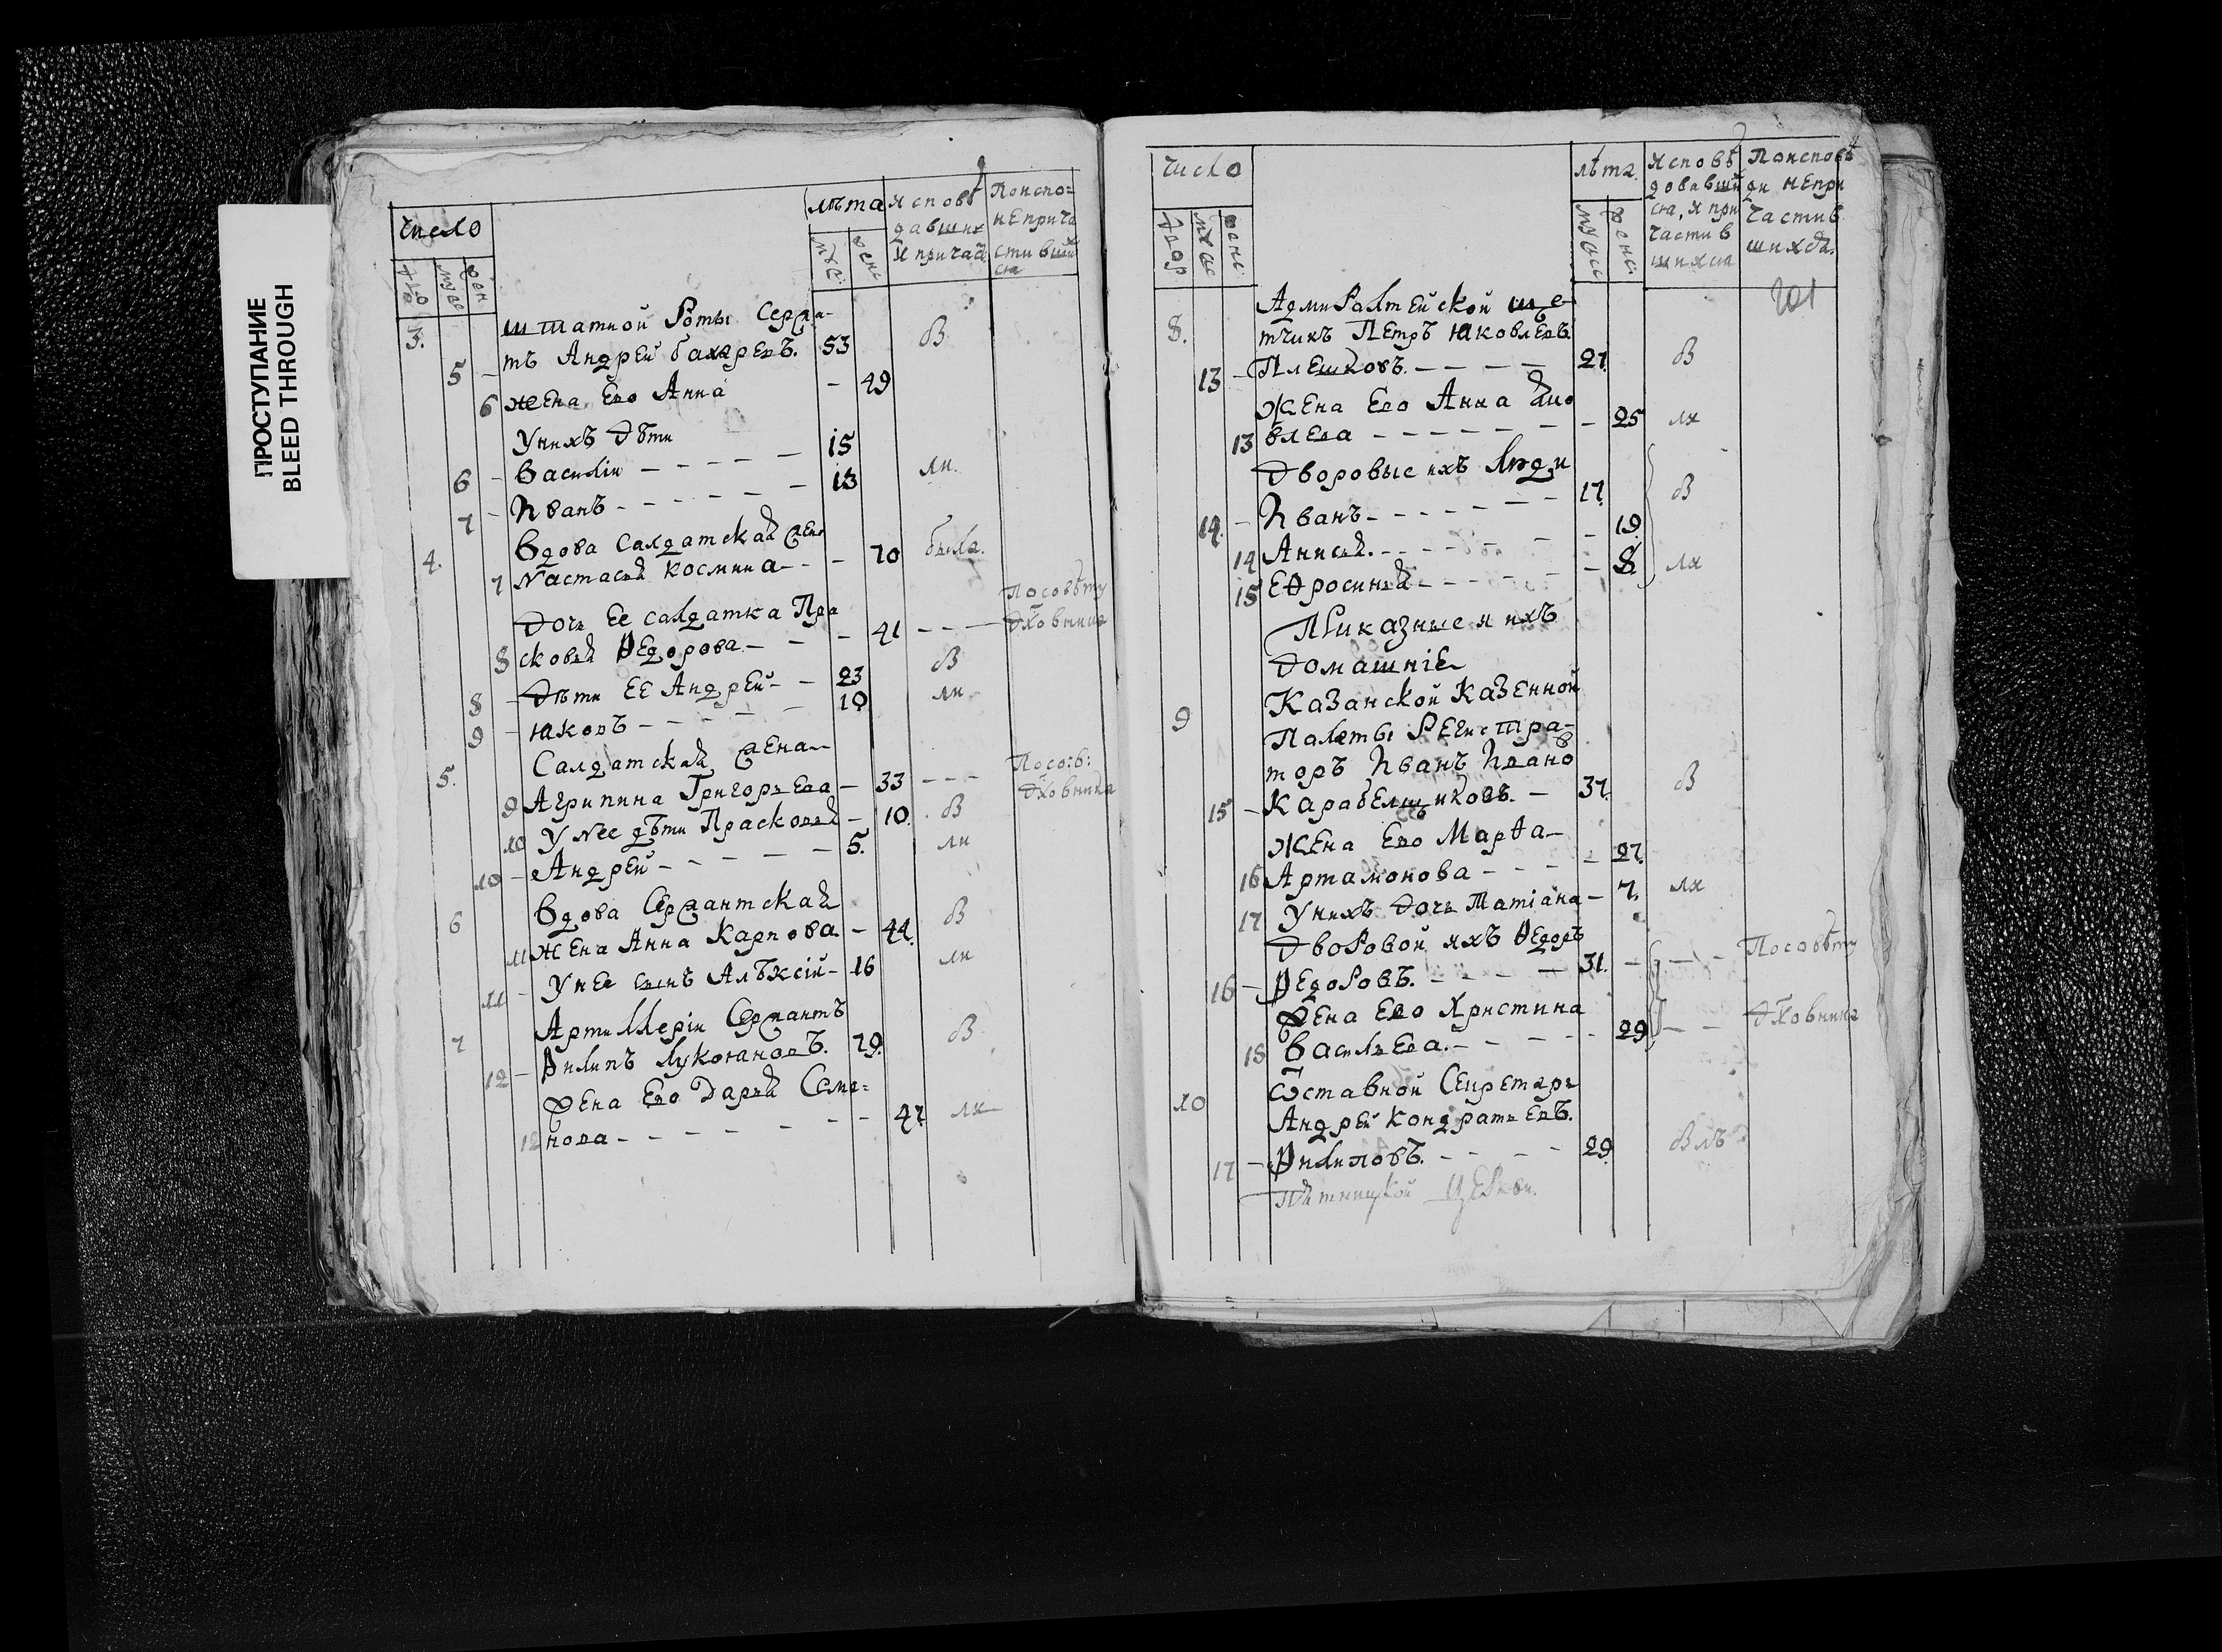 ПРОСТУПАНИЕ
BLEED THROUGH
число
лѣта
Исповѣ
давших
И причас
Поиспо=
неприча
стивший
ся
двор
муж
жен
муж:
женс
3.
штатной Роты Сержан-
5 - тъ Андрей бахаревъ. 53 в
6 жена Ево Анна - 49
Унихъ дѣти
6 - Василiи - - - - - 15 ли.
7 - Иванъ - - - - - 13
4. Вдова салдатская жена
7 Nастасья космина - - - 70 была.
дочь Ее салдатка Пра
8 сковья Ѳедорова - - - 41 - - - Посовѣту дховника
8 - Дѣти ЕЕ Андрей - - 23 в
9 - Яковъ - - - - - 19 ли
5. Салдатская жена
9 Агрипина Григорьева - 33 - - - Посов: дховника
10 У Nее дѣти Прасковья - 10. в
10 - Андрей - - - - - 5. ли
6 вдова Сержантская
11 жена Анна Карпова - 44. в
11 - У нее сынъ Алѣксiй - 16 ли
7 Артиллерiи Сержантъ
12 - Филипъ Лукояновъ. 79. в
Жена Ево Дарья Семе=
12 нова - - - - - - 47. ли
число
лѣта
Исповѣ
довавши
ся, и при
частив
шихся
Поисповѣ
ди непри
частив
шихся.
двор
муж
женс
муж
женс:
201
8. Адмиралтейской ще
тчикъ Петръ Яковлевъ
13 - Плешковъ. - - - - 27. в
Жена Ево Анна Яко
13 влева - - - - - - - 25 ли
Дворовые ихъ люди
14. - Иванъ - - - - - - 17. в
14 Анисья. - - - - - 19.
15 Еѳросинья - - - - - 8. ли
Приказные и ихъ
домашнiе
9 Казанской Казенной
Палаты Регистра-
торъ Иванъ Ивановъ
15 - Карабельщиковъ. - 37. в
Жена Ево Марѳа
16 Артамонова - - - - 27.
17 Унихъ дочь Татiана - 7. ли
Дворовой ихъ Ѳедоръ
16 - Ѳедоровъ. - - - - 31. - - - Посовѣту
Жена Ево Христина
18 Васильева. - - - - - 29 - - дховника
10 Ѿставной Секретарь
Андрей Кондратьевъ.
17 - Филиповъ. - - - - 29. в
Пятницкой Церкви.